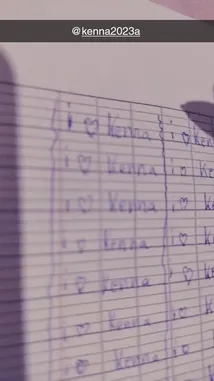 @kenna2023a
i ♡ Kenna i ♡ Ken
i ♡ Kenna i ♡ Ke
i ♡ Kenna i ♡ Ke
i ♡ Kenna i ♡ K
i ♡ Kenna i ♡
i ♡ Kenna i ♡
i ♡ Kenna i ♡